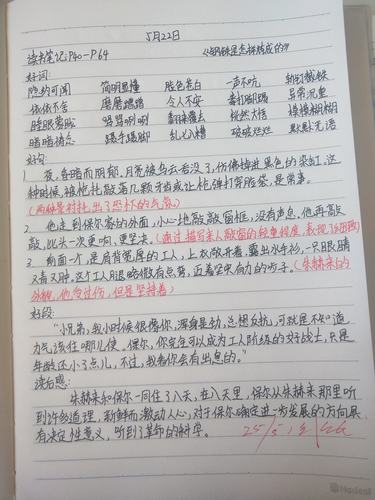 5月22日
读书笔记:P40-P64 《钢铁是怎样炼成的》
好词:
隐约可闻 简明易懂 脸色苍白 一声不吭 斩钉截铁
依依不舍 磨磨蹭蹭 令人不安 拳打脚踢 异常沉重
睡眼蒙眬 唠唠叨叨 翻来覆去 恍然大悟 模模糊糊
暗暗猜忌 蹑手蹑脚 乱七八糟 破破烂烂 默默无语
好句:
1 夜,昏暗而阴郁,月亮被乌云卷没了,仿佛掉进黑色的染缸,这
种时候,被枪托敲落几颗牙齿或让枪弹打穿胳袋,是常事。
(两种景衬托出了恐怖的气氛)
2. 他走到保尔家的外面,小心地敲敲窗框,没有声息,他再敲
敲,比头一次更响,更坚决。(通过描写来人敲窗的轻重程度,表现了
3. 前面一个,是肩背宽厚的工人,上衣敞开着,露出水手衫,一只眼睛
又青又肿,这个工人腿略微有些弯,迈着坚实有力的步子。(朱赫来的
外貌,他受过伤,但是坚持着)
好段:
"小兄弟,我小时候很像你,浑身是劲,总想反抗,可就是不知道
力气该往哪儿使。保尔,你完全可以成为工人阶级的好战士,只是
年龄还小了点儿,不过,我看你会有出息的。"
读后感:
朱赫来和保尔一同住了八天,在八天里,保尔从朱赫来那里听
到许多道理,新鲜而激动人心,对于保尔确定进一步发展的方向具
有决定性意义,听到了革命的科学。